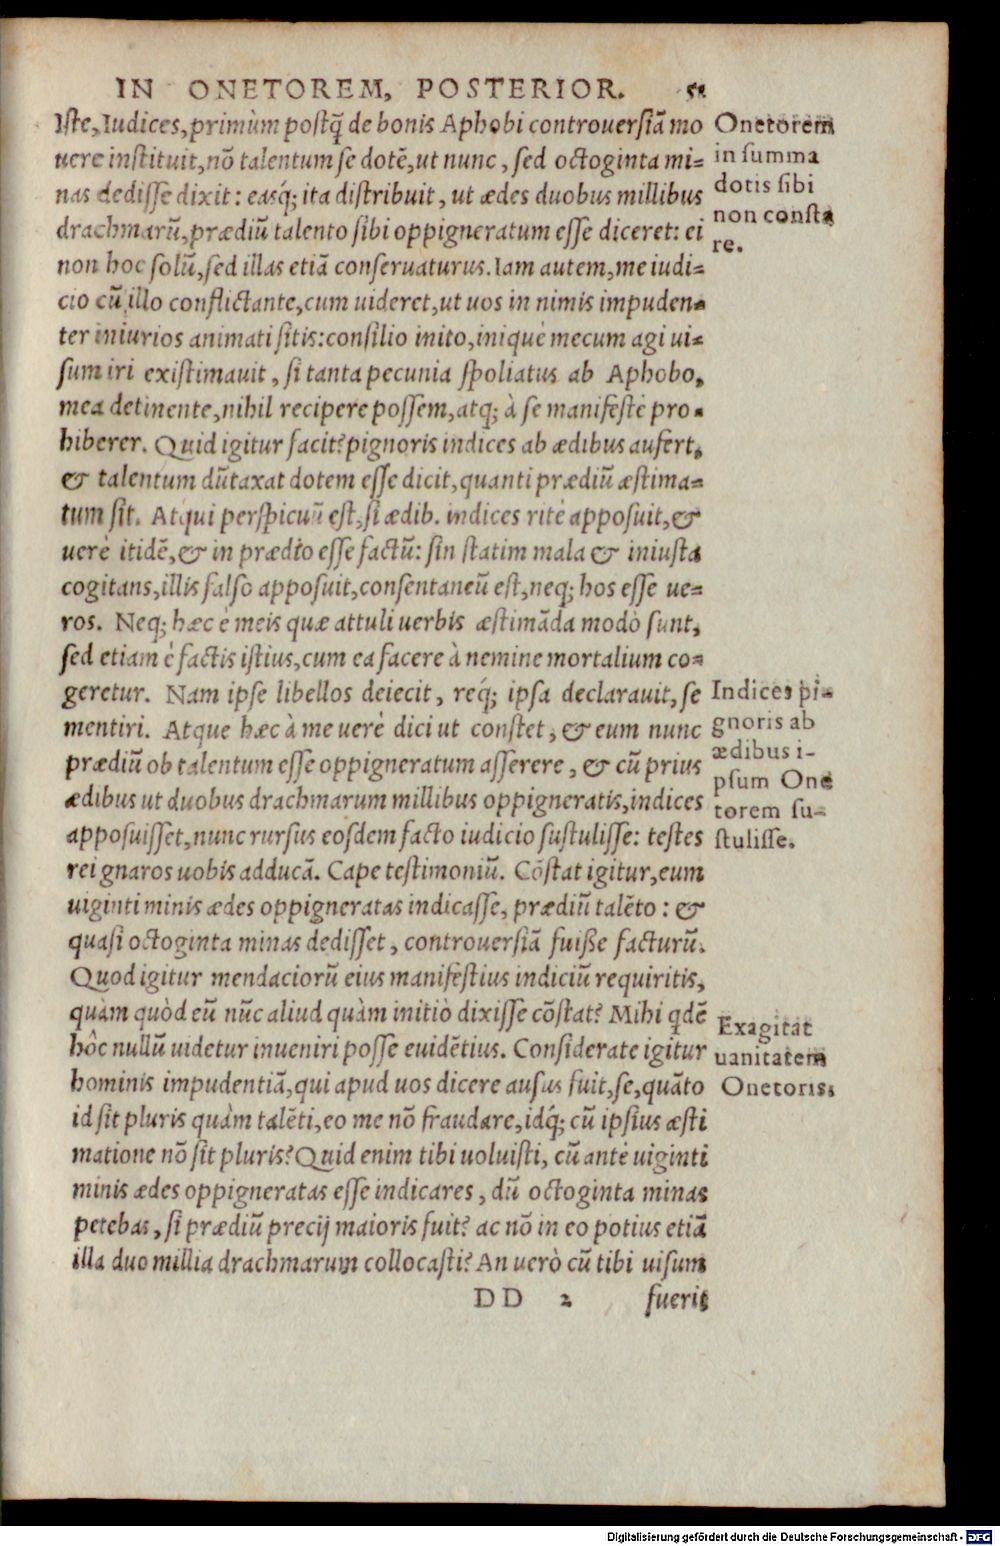 IN ONETOREM, POSTERIOR. 52
Iste, Iudices, primùm postq̃ de bonis Aphobi controuersiã mo
uere instituit, nõ talentum se dotẽ, ut nunc, sed octoginta mi=
nas dedisse dixit: easq́; ita distribuit, ut ædes duobus millibus
drachmarũ, prædiũ talento sibi oppigneratum esse diceret: ei
non hoc solũ, sed illas etiã conseruaturus. Iam autem, me iudi=
cio cũ illo conflictante, cum uideret, ut uos in nimis impuden=
ter iniurios animati sitis: consilio inito, iniquè mecum agi ui=
sum iri existimauit, si tanta pecunia spoliatus ab Aphobo,
mea detinente, nihil recipere possem, atq; à se manifestè pro=
hiberer. Quid igitur facit? pignoris indices ab ædibus aufert,
& talentum dũtaxat dotem esse dicit, quanti prædiũ æstima=
tum sit. Atqui perspicuũ est, si ædib. indices ritè apposuit, &
uerè itidẽ, & in prædio esse factũ: sin statim mala & iniusta
cogitans, illis falso apposuit, consentaneũ est, neq; hos esse ue=
ros. Neq; hæc è meis quæ attuli uerbis æstimãda modò sunt,
sed etiam è factis istius, cum ea facere à nemine mortalium co=
geretur. Nam ipse libellos deiecit, req́; ipsa declarauit, se
mentiri. Atque hæc à me uerè dici ut constet, & eum nunc
prædiũ ob talentum esse oppigneratum asserere, & cũ prius
ædibus ut duobus drachmarum millibus oppigneratis, indices
apposuisset, nunc rursus eosdem facto iudicio sustulisse: testes
rei gnaros uobis adducã. Cape testimoniũ. Cõstat igitur, eum
uiginti minis ædes oppigneratas indicasse, prædiũ talẽto: &
quasi octoginta minas dedisset, controuersiã fuiße facturũ.
Quod igitur mendaciorũ eius manifestius indiciũ requiritis,
quàm quòd eũ nũc aliud quàm initiò dixisse cõstat? Mihi qdẽ
hôc nullũ uidetur inueniri posse euidẽtius. Considerate igitur
hominis impudentiã, qui apud uos dicere ausus fuit, se, quãto
id sit pluris quàm talẽti, eo me nõ fraudare, idq́; cũ ipsius æsti
matione nõ sit pluris? Quid enim tibi uoluisti, cũ antè uiginti
minis ædes oppigneratas esse indicares, dũ octoginta minas
petebas, si prædiũ precij maioris fuit? ac nõ in eo potius etiã
illa duo millia drachmarum collocasti? An uerò cũ tibi uisum
DD 2 fuerit
Onetorem
in summa
dotis sibi
non consta
re.
Indices pi-
gnoris ab
ædibus i-
psum One
torem su-
stulisse.
Exagitat
uanitatem
Onetoris.
Digitalisierung gefördert durch die Deutsche Forschungsgemeinschaft - DFG